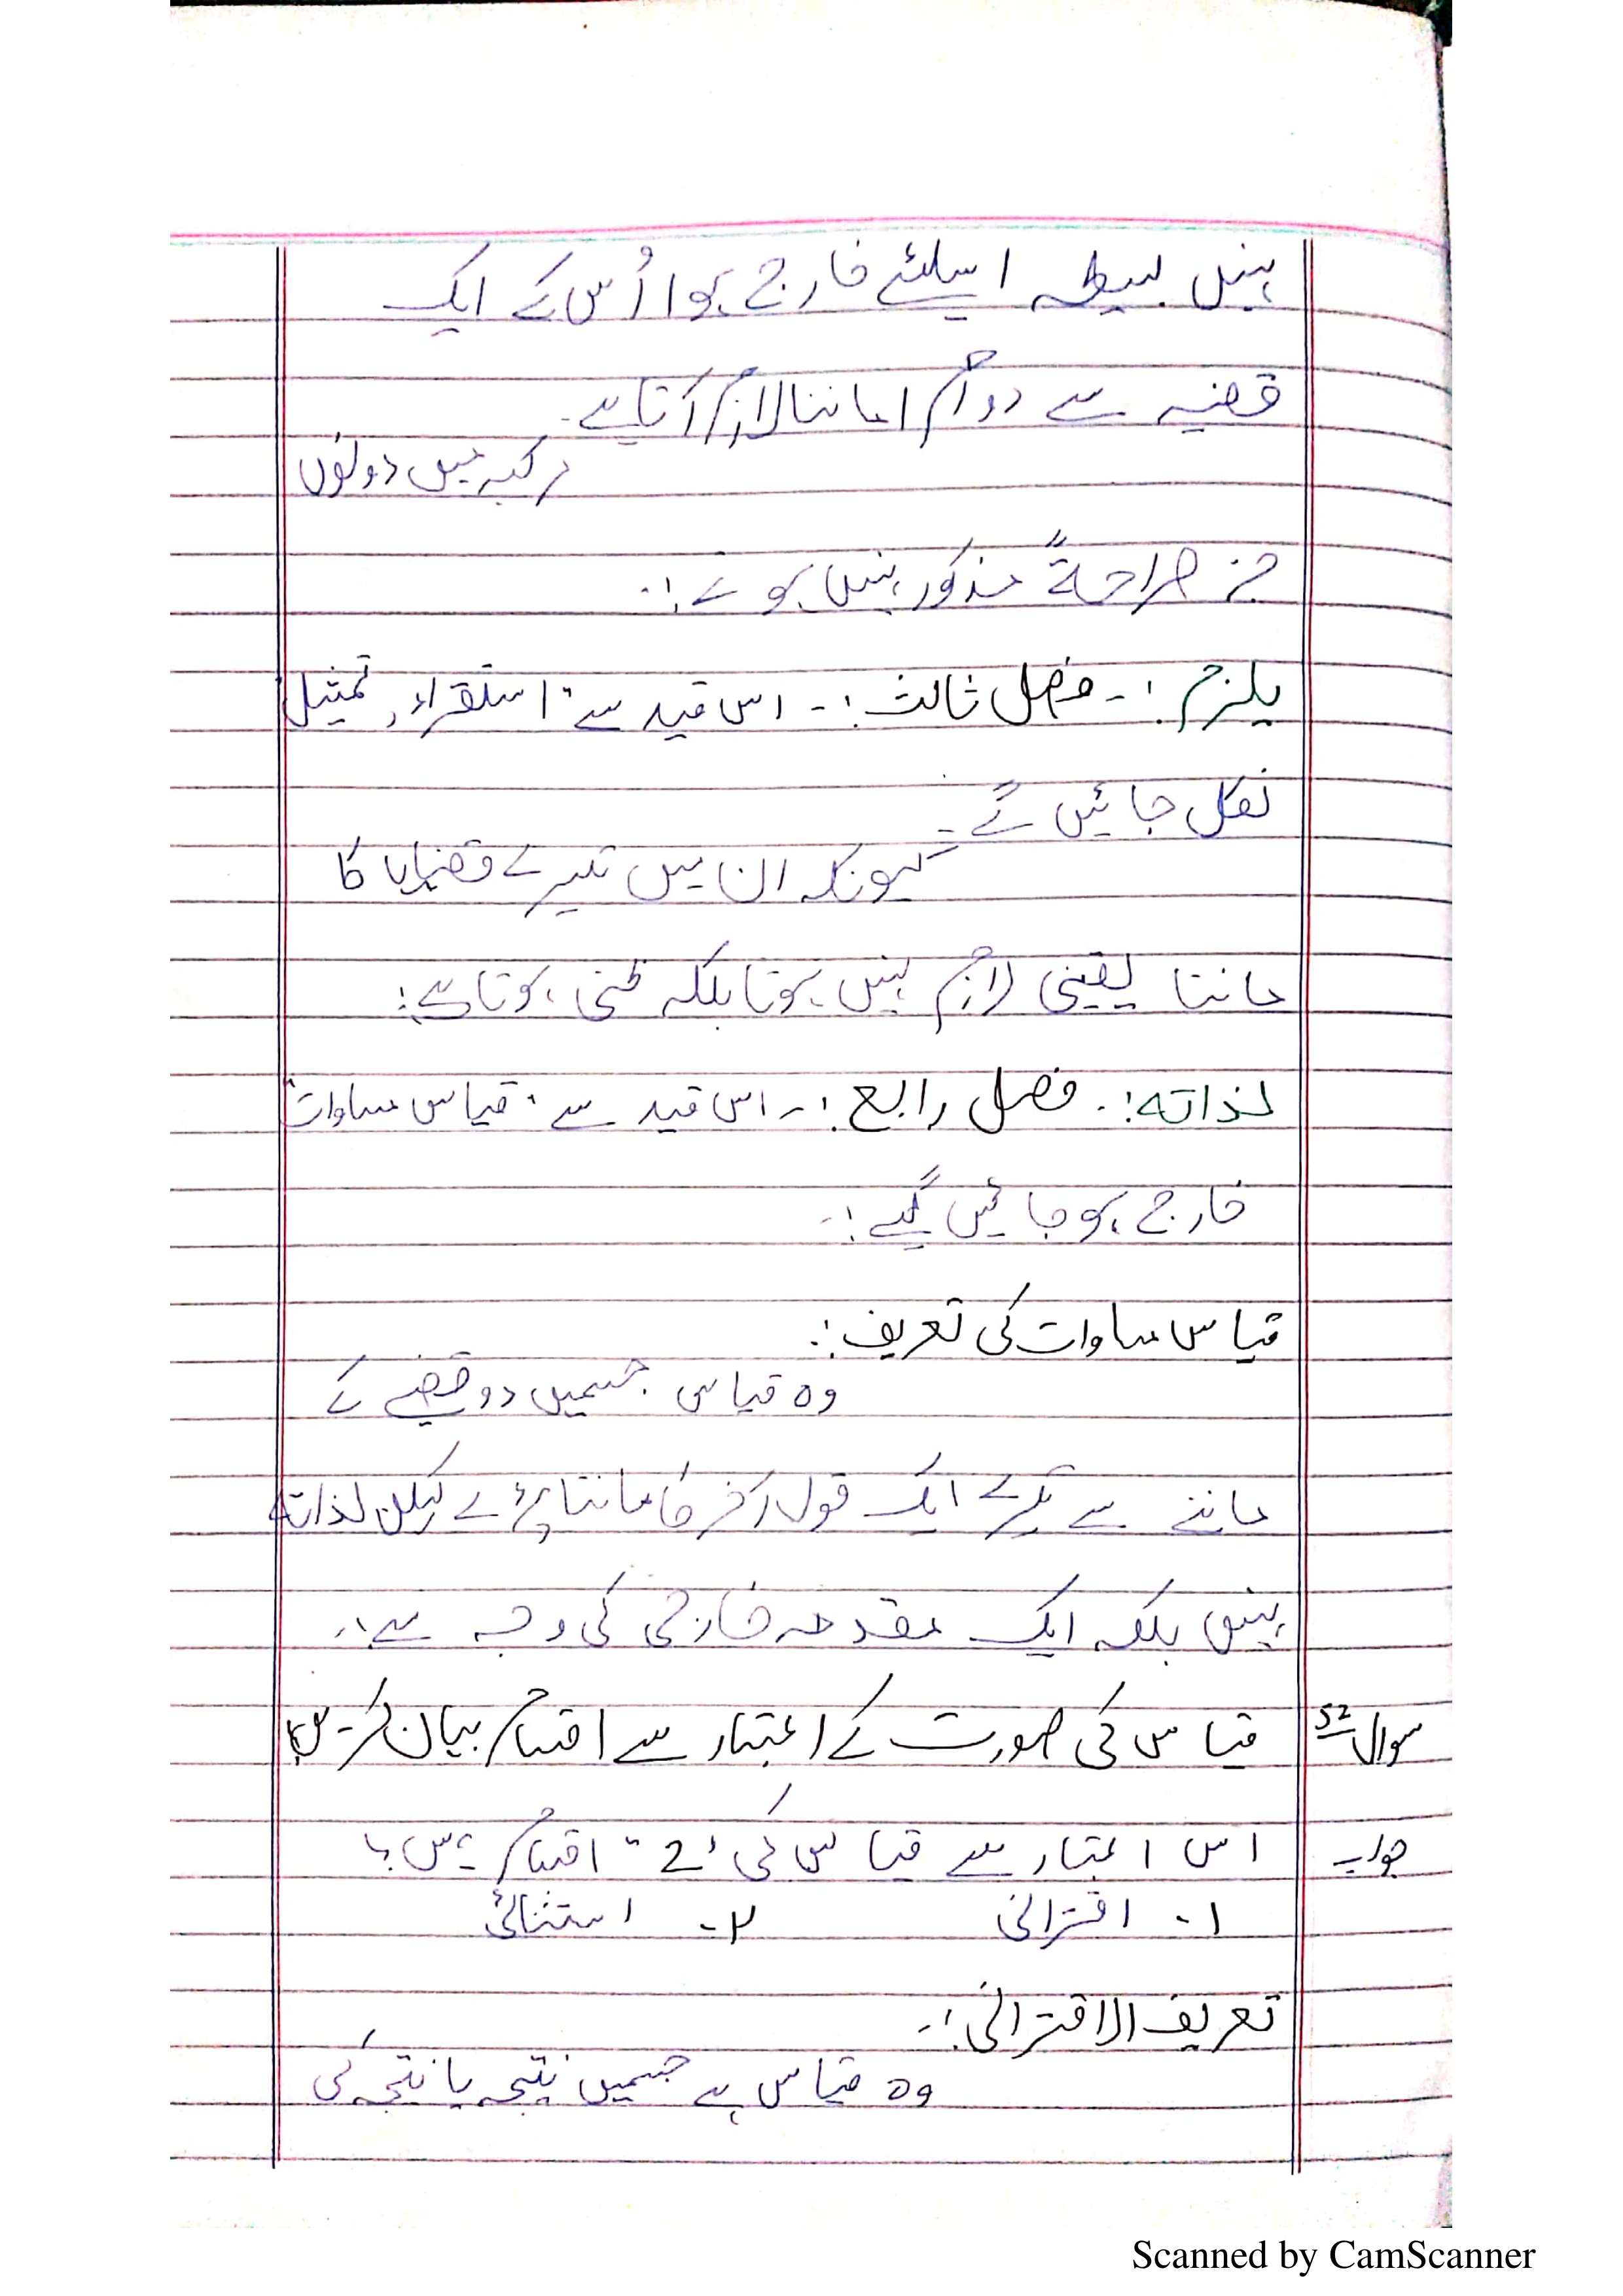 نہیں بسیطہ اسلئے خارج ہوا اُس کے ایک
قضیہ سے دوام ماننا لازم آتا ہے۔
مرکبہ میں دونوں
جز صراحۃً مذکور نہیں ہوتے:۔
یلزم:۔ فصل ثالث:۔ اس قید سے "استقراء، تمثیل
نکل جائیں گے۔
کیونکہ ان میں تیسرے قضایا کا
ماننا یقینی لازم نہیں ہوتا بلکہ ظنی ہوتا ہے:
لذاتہ:۔ فصل رابع:۔ اس قید سے "قیاس مساوات"
خارج ہوجائیں گے:۔
قیاس مساوات کی تعریف:۔
وہ قیاس جسمیں دو قضیے کے
ماننے سے تیسرے ایک قول آخر کا ماننا پڑے لیکن لذاتہ
نہیں بلکہ ایک مقدمہ خارجی کی وجہ سے:۔
سوال 52 قیاس کی صورت کے اعتبار سے اقسام بیان کریں؟
جواب اس اعتبار سے قیاس کی "2" اقسام ہیں؟
۱۔ اقترانی ۲۔ استثنائی
تعریف الاقترانی:۔
وہ قیاس ہے جسمیں نتیجہ یا نتیجہ کی
Scanned by CamScanner